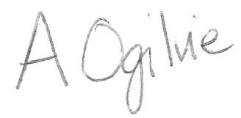 A Ogilvie